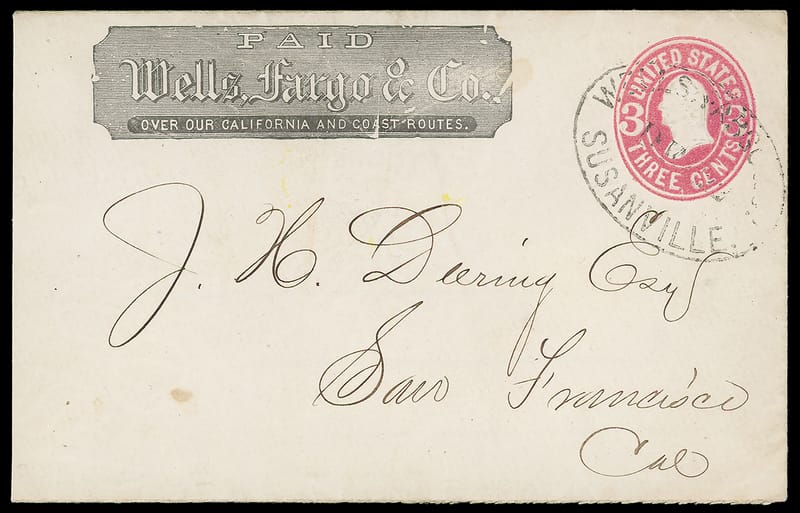 PAID
Wells, Fargo & Co.
OVER OUR CALIFORNIA AND COAST ROUTES.
UNITED STATES
3 3
THREE CENTS
SUSANVILLE.
J. H. Deering Esq
San Francisco
Cal